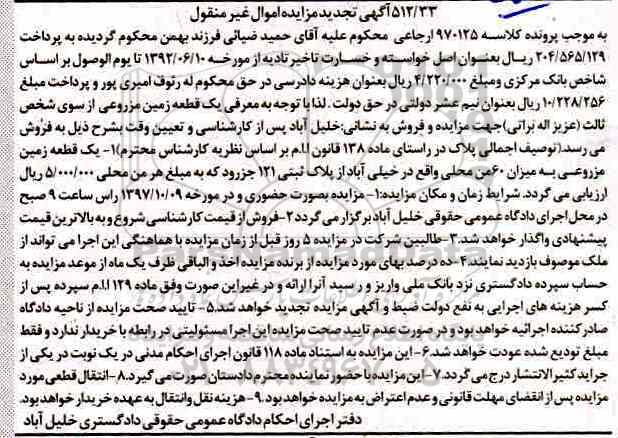 ۵۱۲/۳۳ آگهی تجدید مزایده اموال غیر منقول
به موجب پرونده کلاسه ۹۷۰۱۲۵ ارجاعی محکوم علیه آقای حمید ضیائی فرزند بهمن محکوم گردیده به پرداخت
۲۰۴/۵۶۵/۱۲۹ ریال بعنوان اصل خواسته و خسارت تاخیر تادیه از مورخه ۱۳۹۲/۰۶/۱۰ تا یوم الوصول بر اساس
شاخص بانک مرکزی ومبلغ ۴/۲۲۰/۰۰۰ ریال بعنوان هزینه دادرسی در حق محکوم له رئوف امیری پور و پرداخت مبلغ
۱۰/۲۲۸/۲۵۶ ریال بعنوان نیم عشر دولتی در حق دولت. لذا با توجه به معرفی یک قطعه زمین مزروعی از سوی شخص
ثالث (عزیز اله براتی)جهت مزایده و فروش به نشانی:خلیل آباد پس از کارشناسی و تعیین وقت بشرح ذیل به فروش
می رسد.(توصیف اجمالی پلاک در راستای ماده ۱۳۸ قانون ا.ا.م بر اساس نظریه کارشناس محترم)۱- یک قطعه زمین
مزروعی به میزان ۶۰من محلی واقع در خیلی آباد از پلاک ثبتی ۱۲۱ جزرود که به مبلغ هر من محلی ۵/۰۰۰/۰۰۰ ریال
ارزیابی می گردد. شرایط زمان و مکان مزایده:۱- مزایده بصورت حضوری و در مورخه ۱۳۹۷/۱۰/۰۹ راس ساعت ۹ صبح
در محل اجرای دادگاه عمومی حقوقی خلیل آباد برگزار می گردد۲-فروش از قیمت کارشناسی شروع و به بالاترین قیمت
پیشنهادی واگذار خواهد شد.۳-طالبین شرکت در مزایده ۵ روز قبل از زمان مزایده با هماهنگی این اجرا می تواند از
ملک موصوف بازدید نمایند.۴-ده درصد بهای مورد مزایده از برنده مزایده اخذ و الباقی ظرف یک ماه از موعد مزایده به
حساب سپرده دادگستری نزد بانک ملی واریز و رسید آنرا ارائه و در غیر این صورت وفق ماده ۱۲۹ ا.ا.م سپرده پس از
کسر هزینه های اجرایی به نفع دولت ضبط و آگهی مزایده تجدید خواهد شد.۵- تایید صحت مزایده از ناحیه دادگاه
صادرکننده اجرائیه خواهد بود و در صورت عدم تایید صحت مزایده این اجرا مسئولیتی در رابطه با خریدار ندارد و فقط
مبلغ تودیع شده عودت خواهد شد.۶-این مزایده به استناد ماده ۱۱۸ قانون اجرای احکام مدنی در یک نوبت در یکی از
جراید کثیرالانتشار درج می گردد.۷-این مزایده با حضور نماینده محترم دادستان صورت می گیرد.۸-انتقال قطعی مورد
مزایده پس از انقضای مهلت قانونی و عدم اعتراض به مزایده خواهد بود.۹- هزینه نقل وانتقال به عهده خریدار خواهد بود.
دفتر اجرای احکام دادگاه عمومی حقوقی دادگستری خلیل آباد